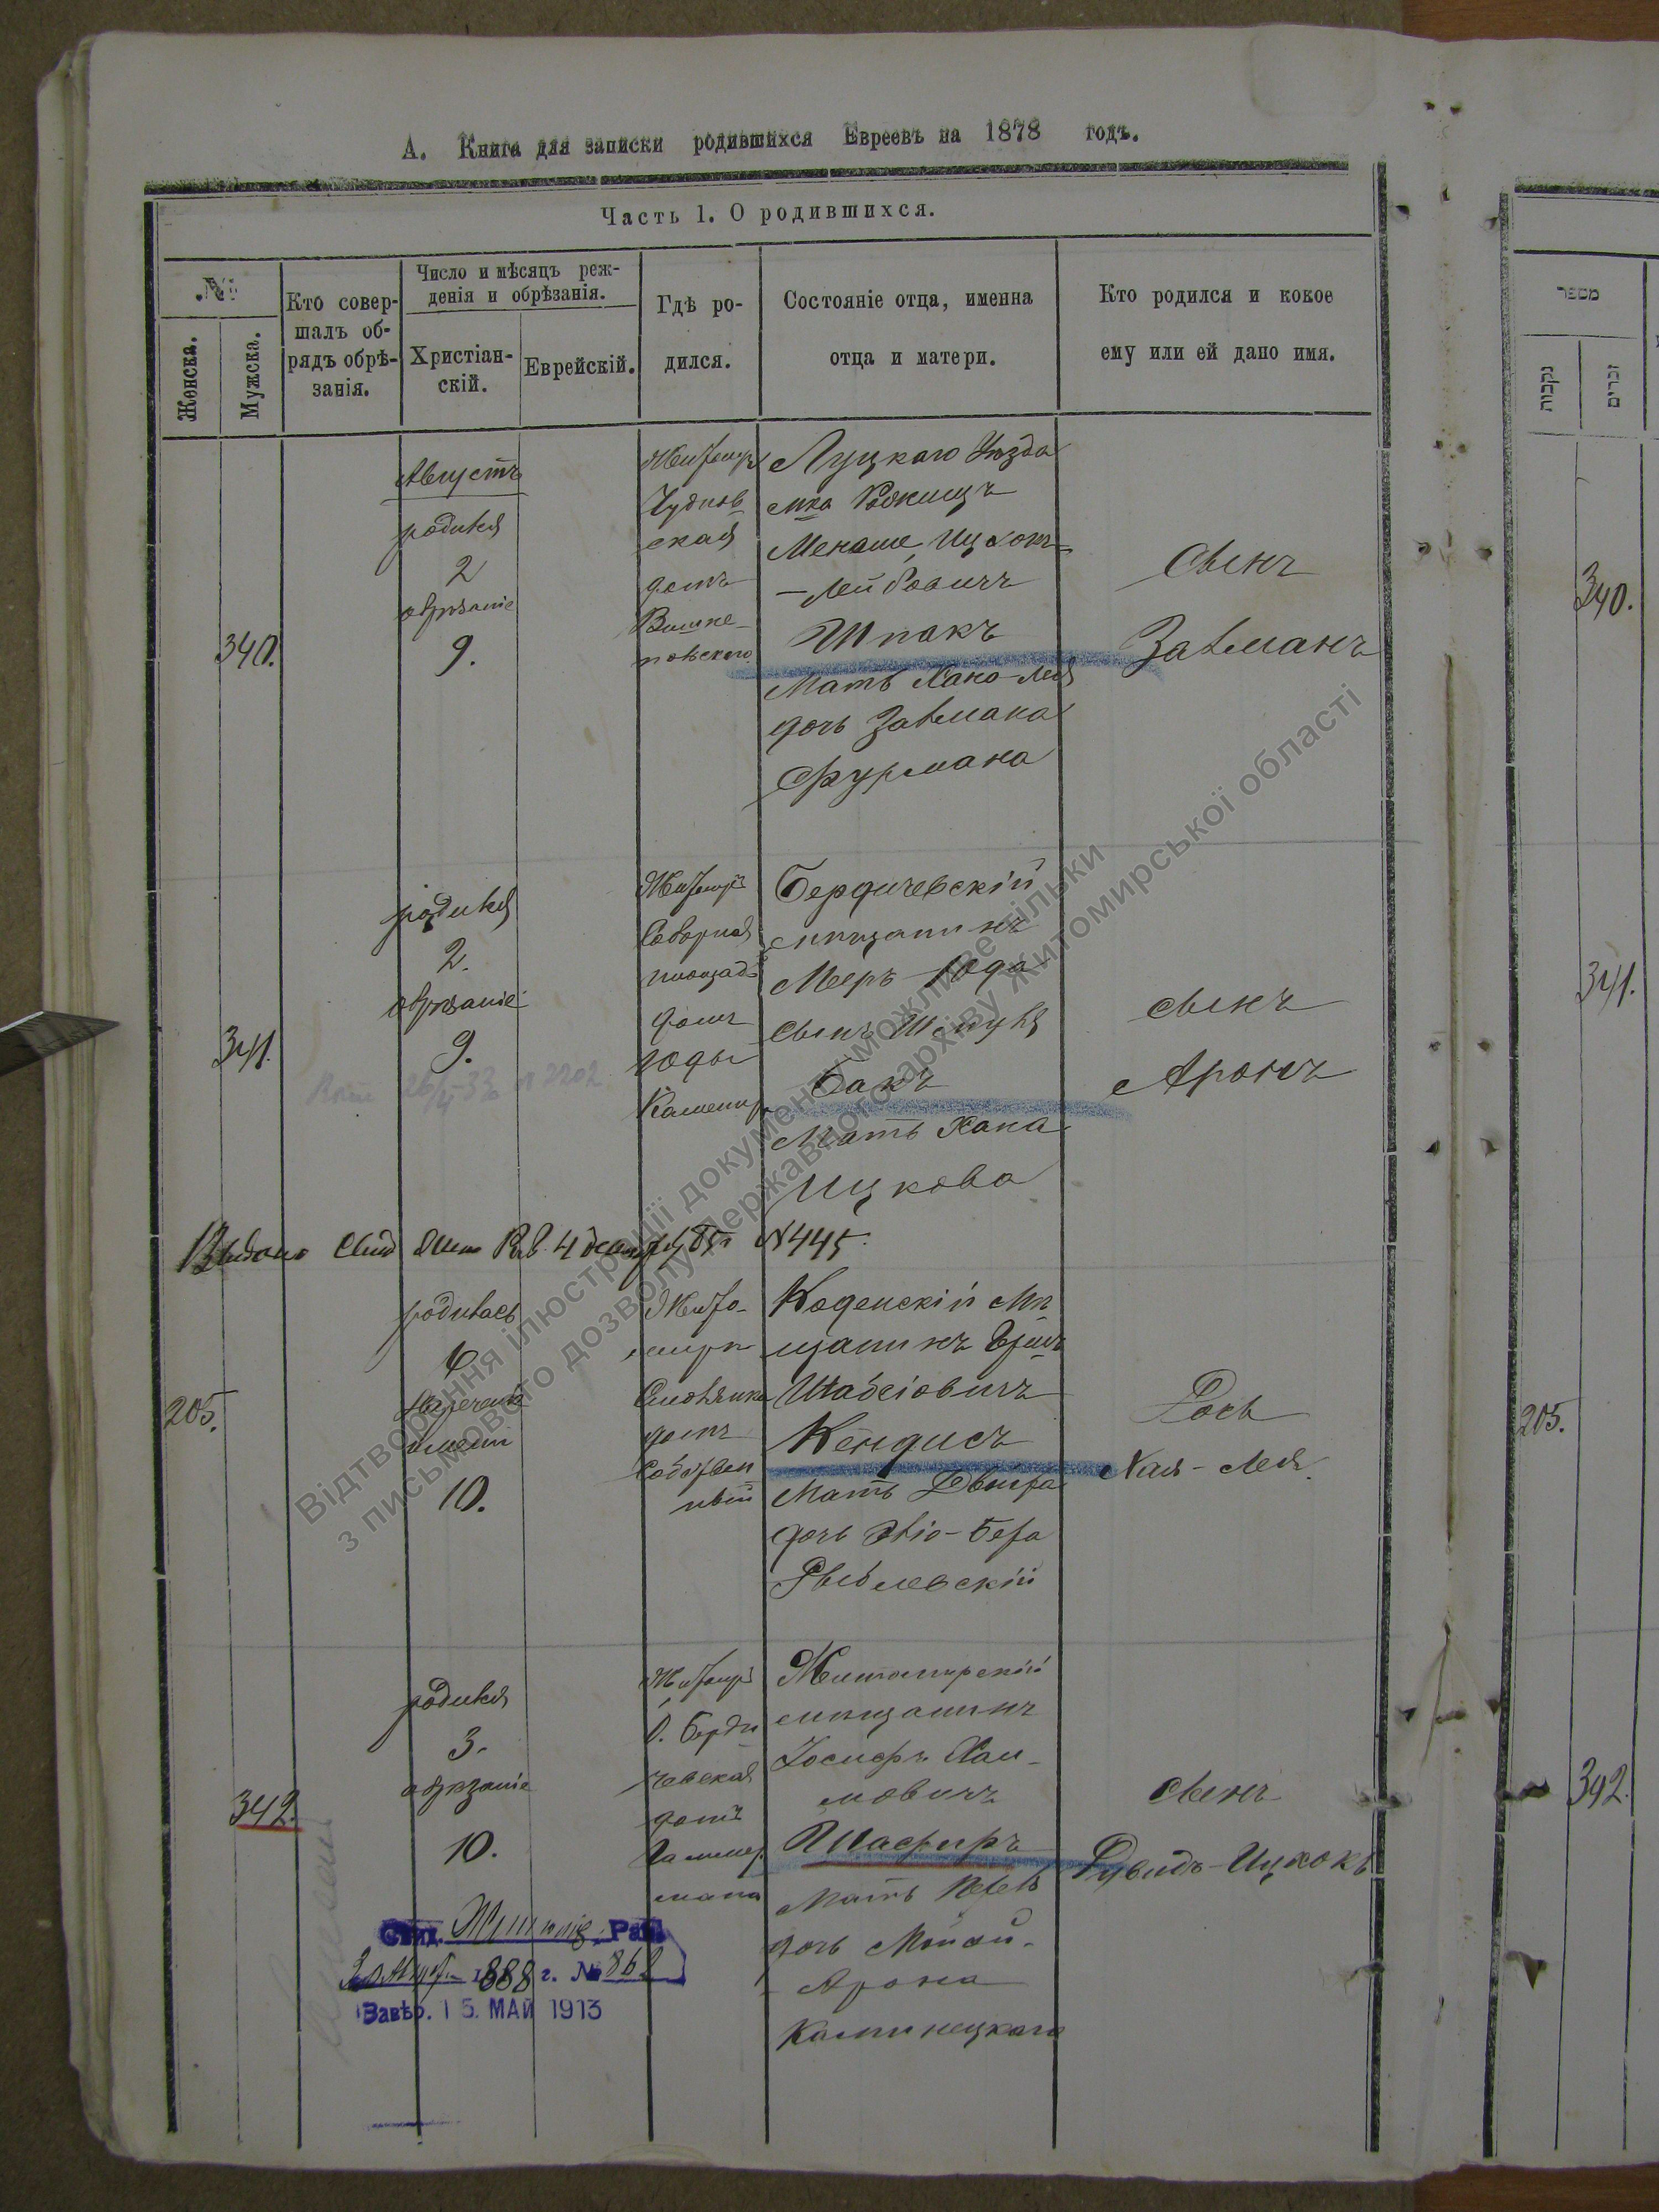 А. Книга для записки родившихся Евреевъ на 1878 годъ.
Часть 1. О родившихся.
№
Женска.
Мужска.
Кто совер-
шалъ об-
рядъ обрѣ-
занія.
Число и мѣсяцъ реж-
денія и обрѣзанія.
Христіан-
скій.
Еврейскій.
Гдѣ ро-
дился.
Состояніе отца, именна
отца и матери.
Кто родился и кокое
ему или ей дано имя.
340.
Августъ
родился
2
обрѣзаніе
9.
Житомиръ
Чуднов
ская
домъ
Луцкаго Уѣзда
мка Рожищъ
Менаше Ицкокъ
-Лейбовичъ
Шпакъ
Мать Хано-Лея
дочь Залмана
Фурмана
Сынъ
Залманъ
341.
родился
2.
обрѣзаніе
9.
Житомиръ
Соборная
площадь
домъ
Юды
Бердичевскій
мѣщанинъ
Мееръ-Юда
сынъ Шмуля
Бакъ
Мать Хана
Ицкова
сынъ
Аронъ
Выдано Свид 4 №445.
205.
родилась
6
нареченіе
имени
10.
Жито-
мирѣ
домъ
Собствен
ный
Коденскій Мѣ
щанинъ Гершъ
Шабсіовичъ
Кендисъ
Мать Двойра
дочь Эліо-Бера
Рыблевскій
Дочь
Хая-Лея.
342.
родился
3.
обрѣзаніе
10.
Житомиръ
Б. Берди
чевская
домъ
Гаммер
мана
Житомирскій
мѣщанинъ
Іосифъ Хаи-
мовичъ
Шафиръ
Мать
дочь
Арона
Каминецкаго
сынъ
Рувидъ-Ицкокъ
Свид. Рав
1888 г. № 862
Завѣр. 15. МАЙ 1913
מספר
נקבות
זכרים
340.
341.
205.
342.
Відтворення ілюстрації документу можливе тільки
з письмового дозволу Державного архіву Житомирської області